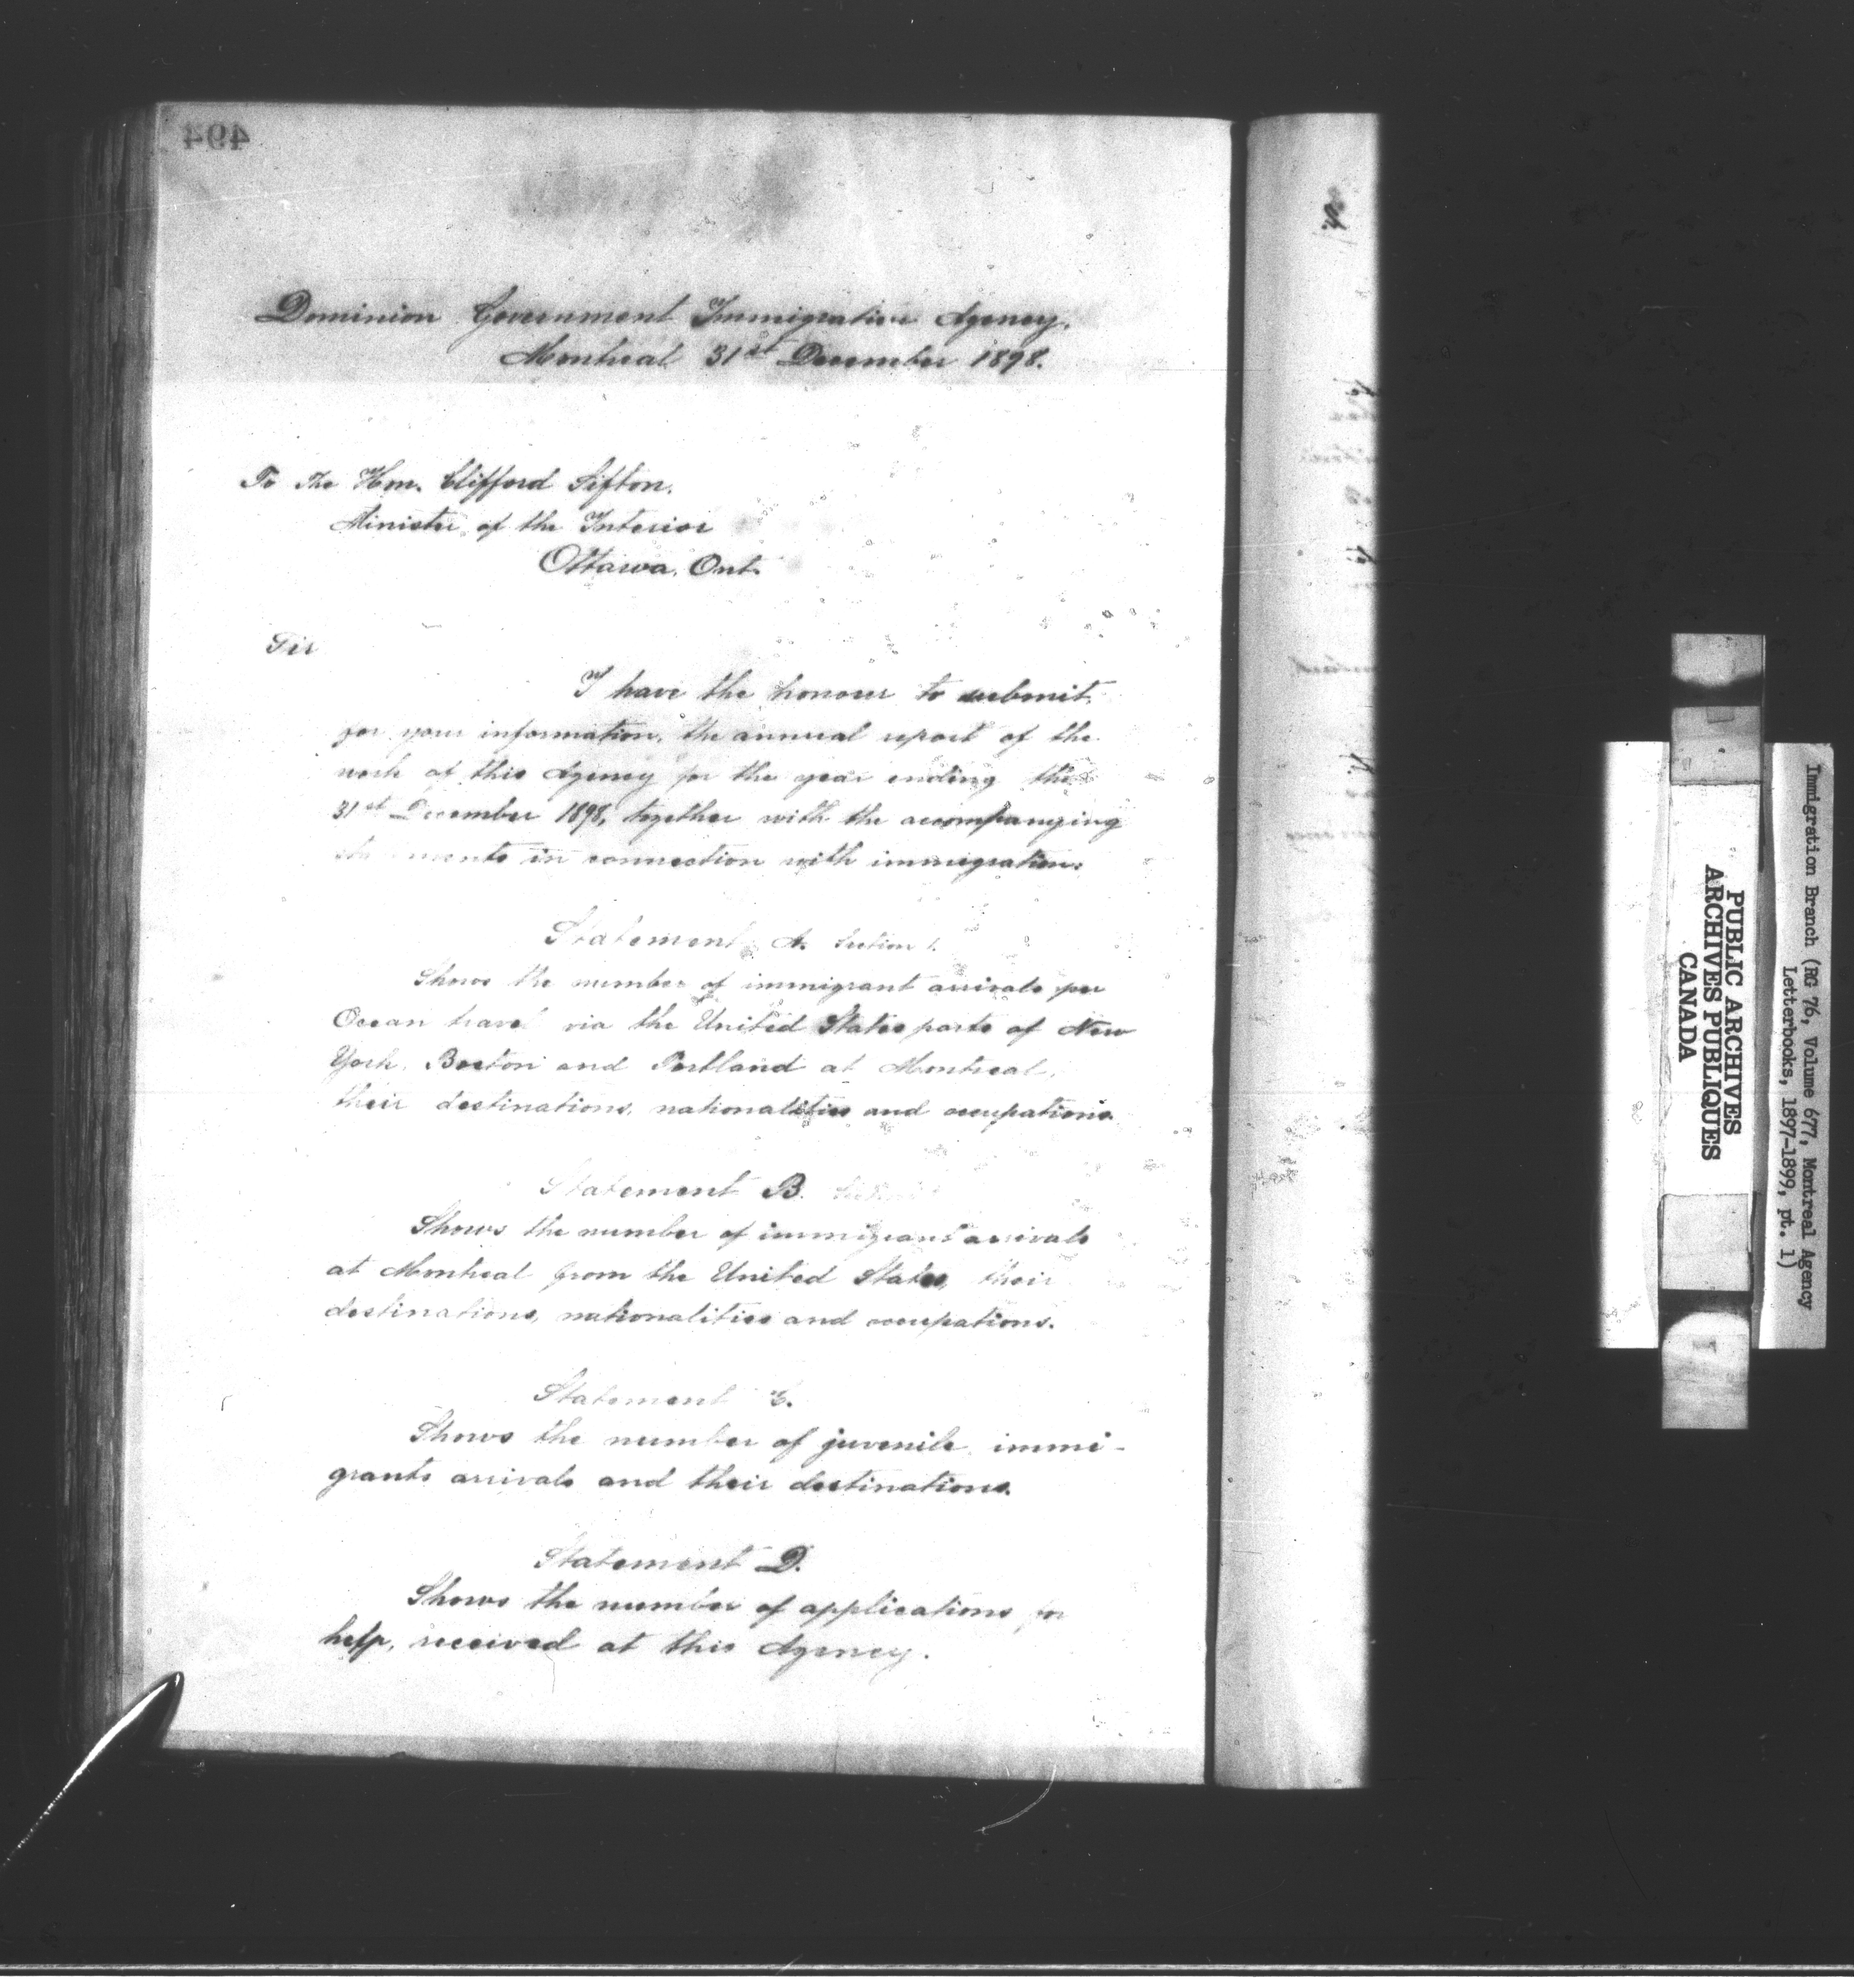 494
Dominion Government Immigration Agency.
Montreal 31st December 1898.
To The Hon. Clifford Sifton,
Minister of the Interior
Ottawa, Ont.
Sir
I have the honour to submit,
for your information, the annual report of the
work of this Agency for the year ending the
31st December 1898, together with the accompanying
statements in connection with immigration:
Statement A. Section 1.
Shows the number of immigrant arrivals per
Ocean travel via the United States ports of New
York, Boston and Portland at Montreal,
their destinations, nationalities and occupations.
Statement B.
Shows the number of immigrant arrivals
at Montreal from the United States, their
destinations, nationalities and occupations.
Statement C.
Shows the number of juvenile immi-
grants arrivals and their destinations.
Statement D.
Shows the number of applications for
help, received at this Agency.
PUBLIC ARCHIVES
ARCHIVES PUBLIQUES
CANADA
Immigration Branch (RG 76, Volume 677, Montreal Agency
Letterbooks, 1897-1899, pt. 1)